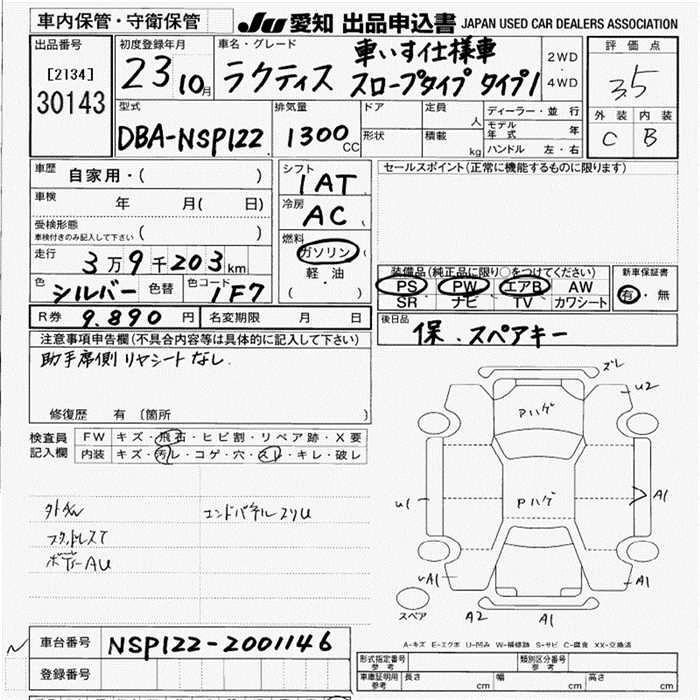 車内保管・守衛保管
JU 愛知 出品申込書 JAPAN USED CAR DEALERS ASSOCIATION
出品番号
[2134]
30143
初度登録年月
23 10月
車名・グレード
車いす仕様車
ラクティス スロープタイプ タイプ1
2WD
・
4WD
評価点
3.5
外装 内装
C B
型式
DBA-NSP122
排気量
1300CC
ドア
形状
定員
人
積載
kg
ディーラー・並行
モデル年式 年
ハンドル 左・右
車歴 自家用・( )
車検 年 月( 日)
受検形態
車検付きのみ記入して下さい ( )
走行 3万9千203km
色 シルバー 色替 色コード 1F7
シフト
1AT
冷房
AC
燃料
ガソリン
軽・油
( ・ )
セールスポイント(正常に機能するものに限ります)
装備品(純正品に限り○をつけてください)
PS PW エアB AW
SR ナビ TV カワシート
新車保証書
有・無
R券 9.890 円 名変期限 月 日
後日品
保.スペアキー
注意事項申告欄(不具合内容等は具体的に記入して下さい)
助手席側リヤシートなし.
修復歴 有 (箇所 )
検査員
記入欄
FW キズ・飛石・ヒビ割・リペア跡・X要
内装 キズ・汚レ・コゲ・穴・スレ・キレ・破レ
エンドパネルスリU
ボデーAU
ズレ
U2
Pハゲ
U1
A1
A1
A1
A2
A1
スペア
A-キズ E-エクボ U-凹み W-補修跡 S-サビ C-腐食 XX-交換済
車台番号 NSP122-2001146
登録番号
形式指定番号
参考
類別区分番号
参考
車庫証明用
参考
長さ cm 幅 cm 高さ cm